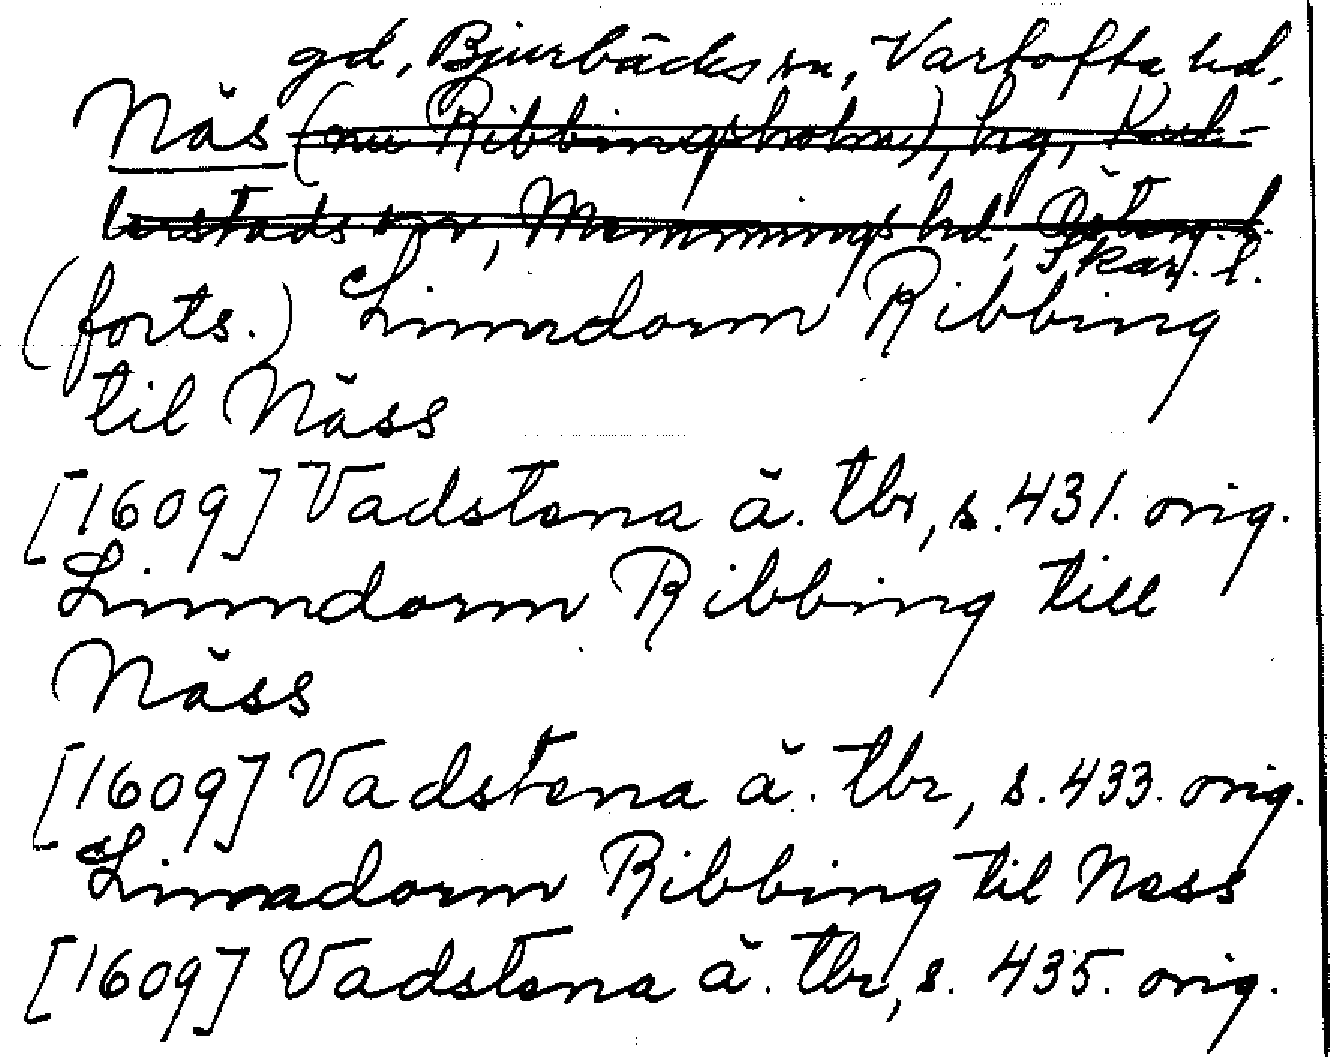 gd, Bjurbäcks sn, Vartofta hd.
Näs (nu Ribbingsholm), hg, Kul-
lerstads sn, Memmings hd, Österg. l.
Skar. l.
(forts.) Linndorm Ribbing
til Näss
[1609] Vadstena ä. tbr, s. 431. orig.
Linndorm Ribbing till
Näss
[1609] Vadstena ä. tbr, s. 433. orig.
Linndorm Ribbing til Ness
[1609] Vadstena ä. tbr, s. 435. orig.